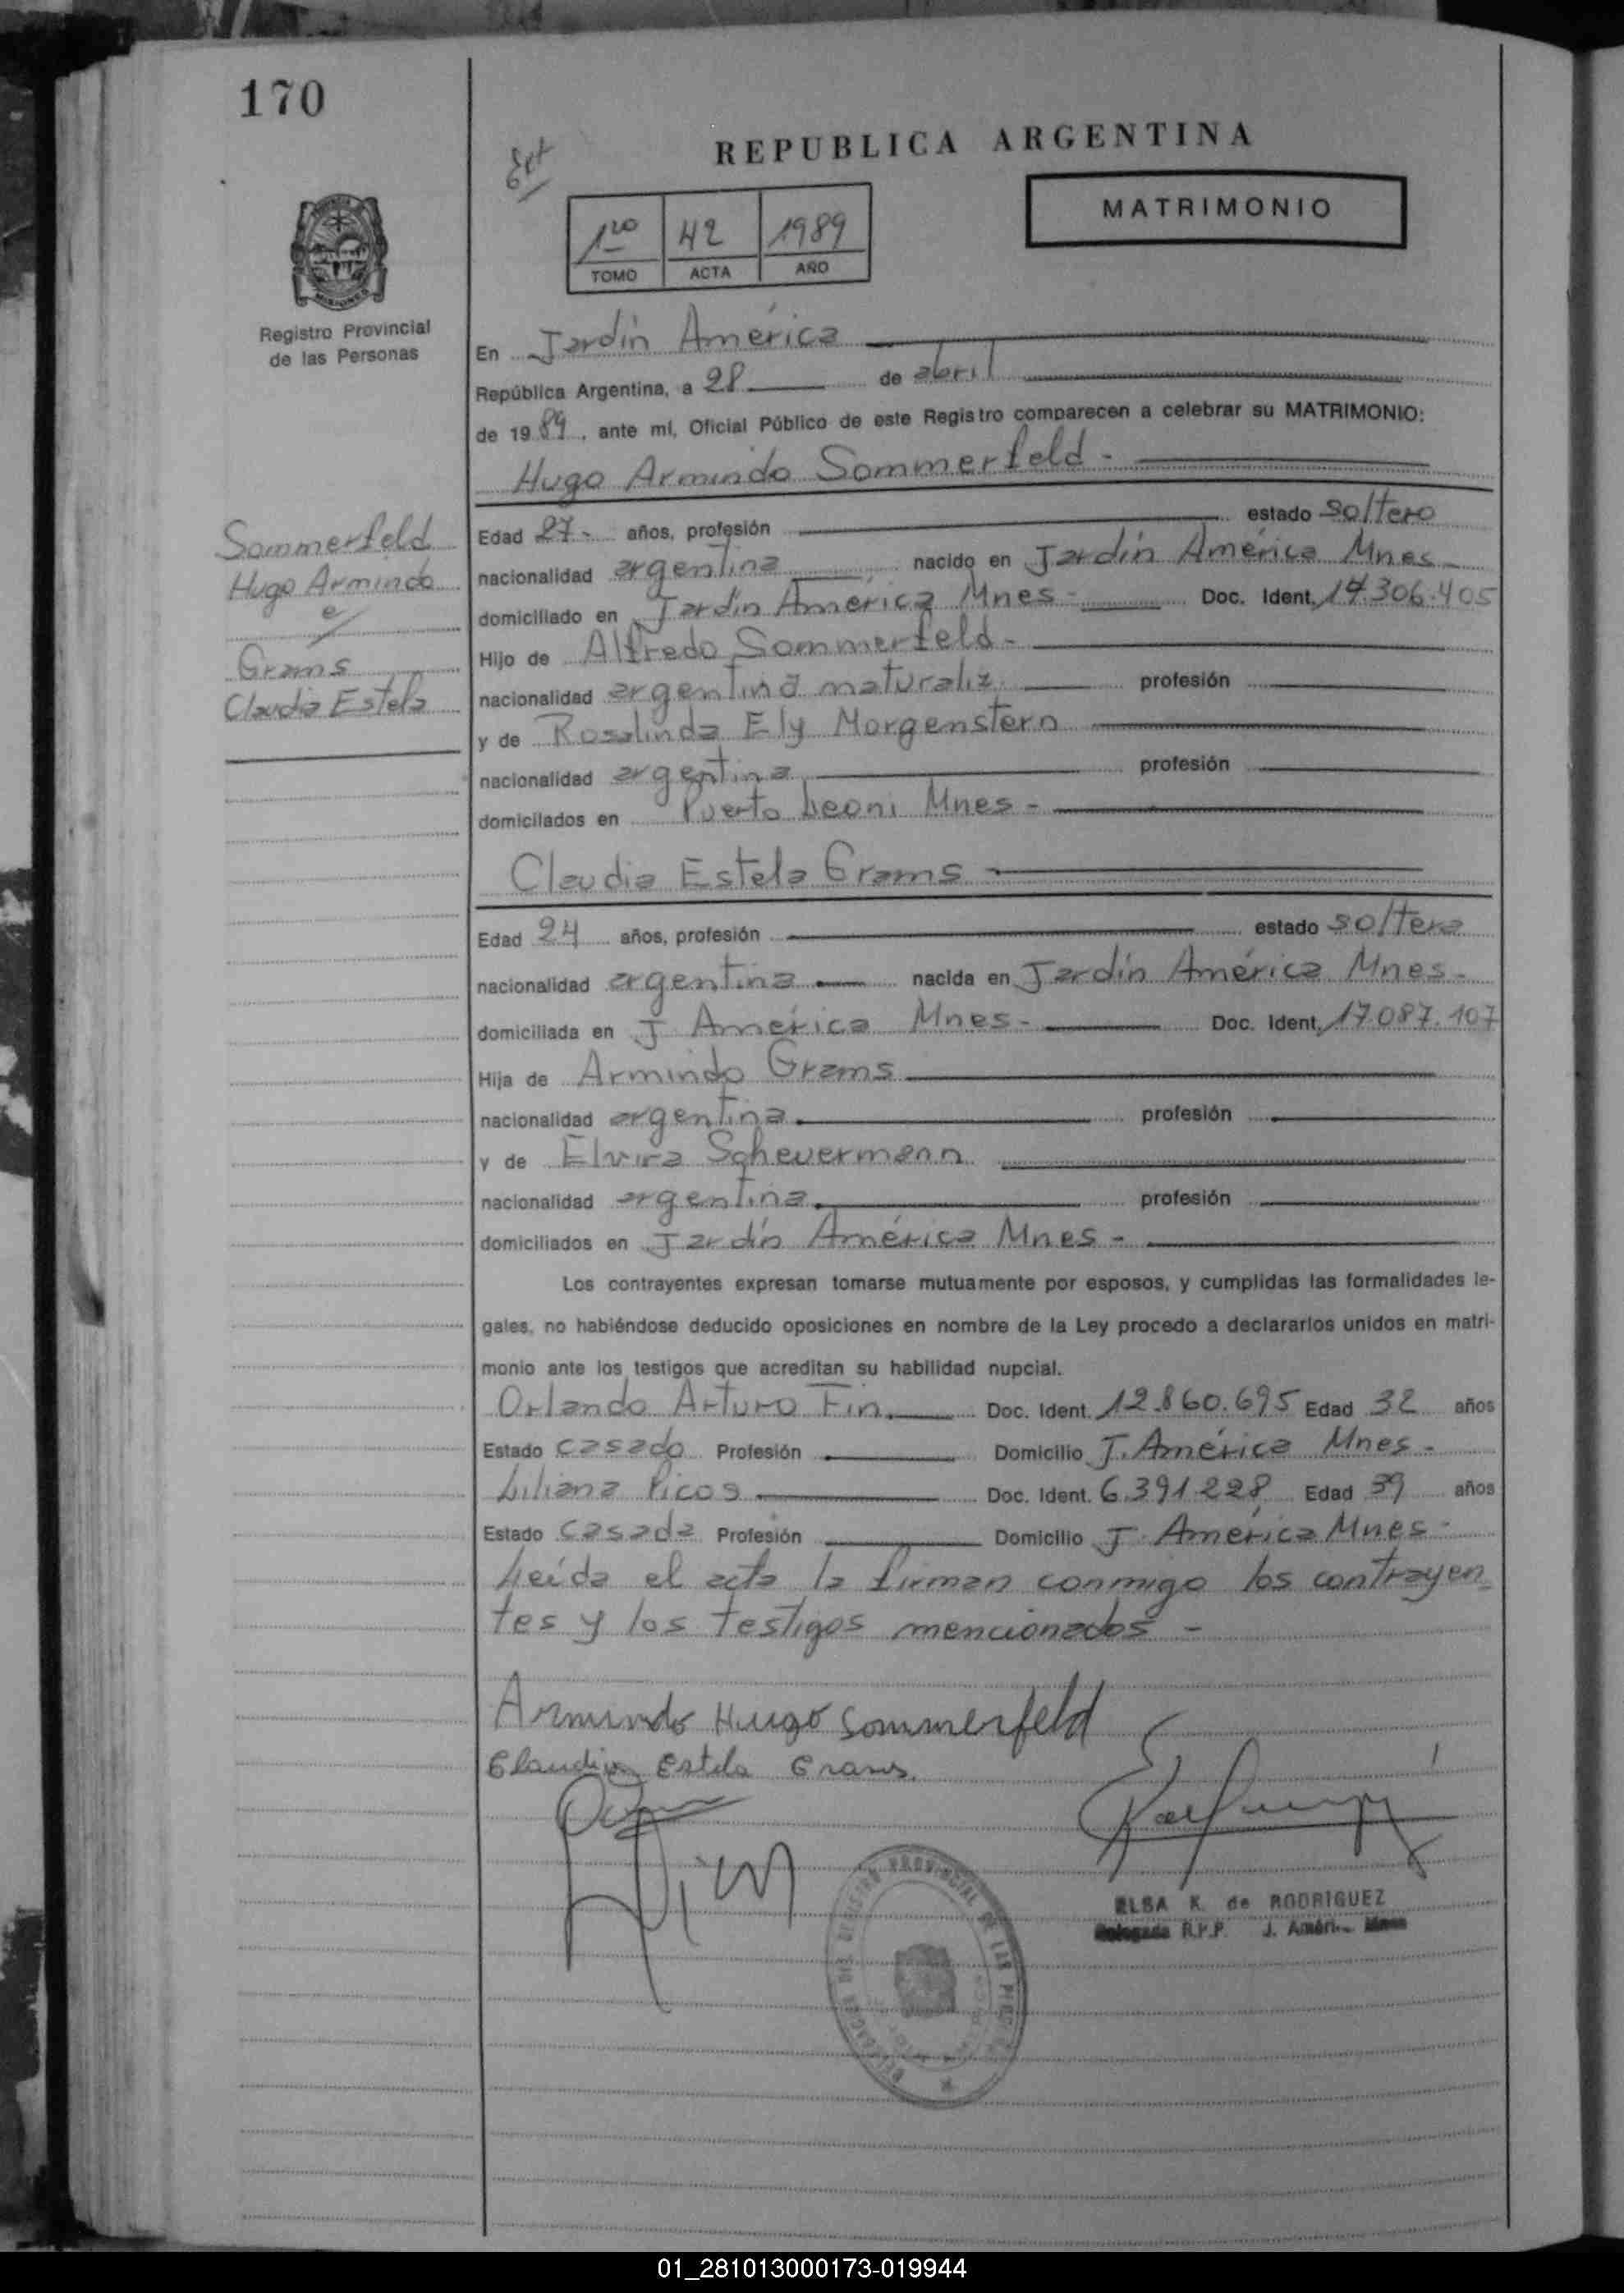 170
Ext
REPUBLICA ARGENTINA
1ro 42 1989
TOMO ACTA AÑO
MATRIMONIO
Registro Provincial
de las Personas
En Jardín América
República Argentina, a 28 de abril
de 1989, ante mí, Oficial Público de este Registro comparecen a celebrar su MATRIMONIO:
Hugo Armindo Sommerfeld -
Sommerfeld
Hugo Armindo
c/
Grams
Claudia Estela
Edad 27- años, profesión estado soltero
nacionalidad argentina nacido en Jardín América Mnes-
domiciliado en Jardín América Mnes- Doc. Ident. 14.306.405
Hijo de Alfredo Sommerfeld-
nacionalidad argentina naturaliz. profesión
y de Rosalinda Ely Morgenstern
nacionalidad argentina profesión
domicilados en Puerto Leoni Mnes-
Claudia Estela Grams
Edad 24 años, profesión estado soltera
nacionalidad argentina nacida en Jardín América Mnes-
domiciliada en J América Mnes- Doc. Ident. 17.087.107
Hija de Armindo Grams
nacionalidad argentina profesión
y de Elvira Scheuermann
nacionalidad argentina profesión
domiciliados en Jardín América Mnes-
Los contrayentes expresan tomarse mutuamente por esposos, y cumplidas las formalidades le-
gales, no habiéndose deducido oposiciones en nombre de la Ley procedo a declararlos unidos en matri-
monio ante los testigos que acreditan su habilidad nupcial.
Orlando Arturo Fin Doc. Ident. 12.860.695 Edad 32 años
Estado casado Profesión Domicilio J. América Mnes-
Liliana Picos Doc. Ident. 6.391.228 Edad 39 años
Estado casada Profesión Domicilio J. América Mnes-
Leída el acta la firman conmigo los contrayen-
tes y los testigos mencionados -
Armindo Hugo Sommerfeld
Claudia Estela Grams.
ELSA K. de RODRIGUEZ
Delegada R.P.P. J. Améri. Mnes
01_281013000173-019944